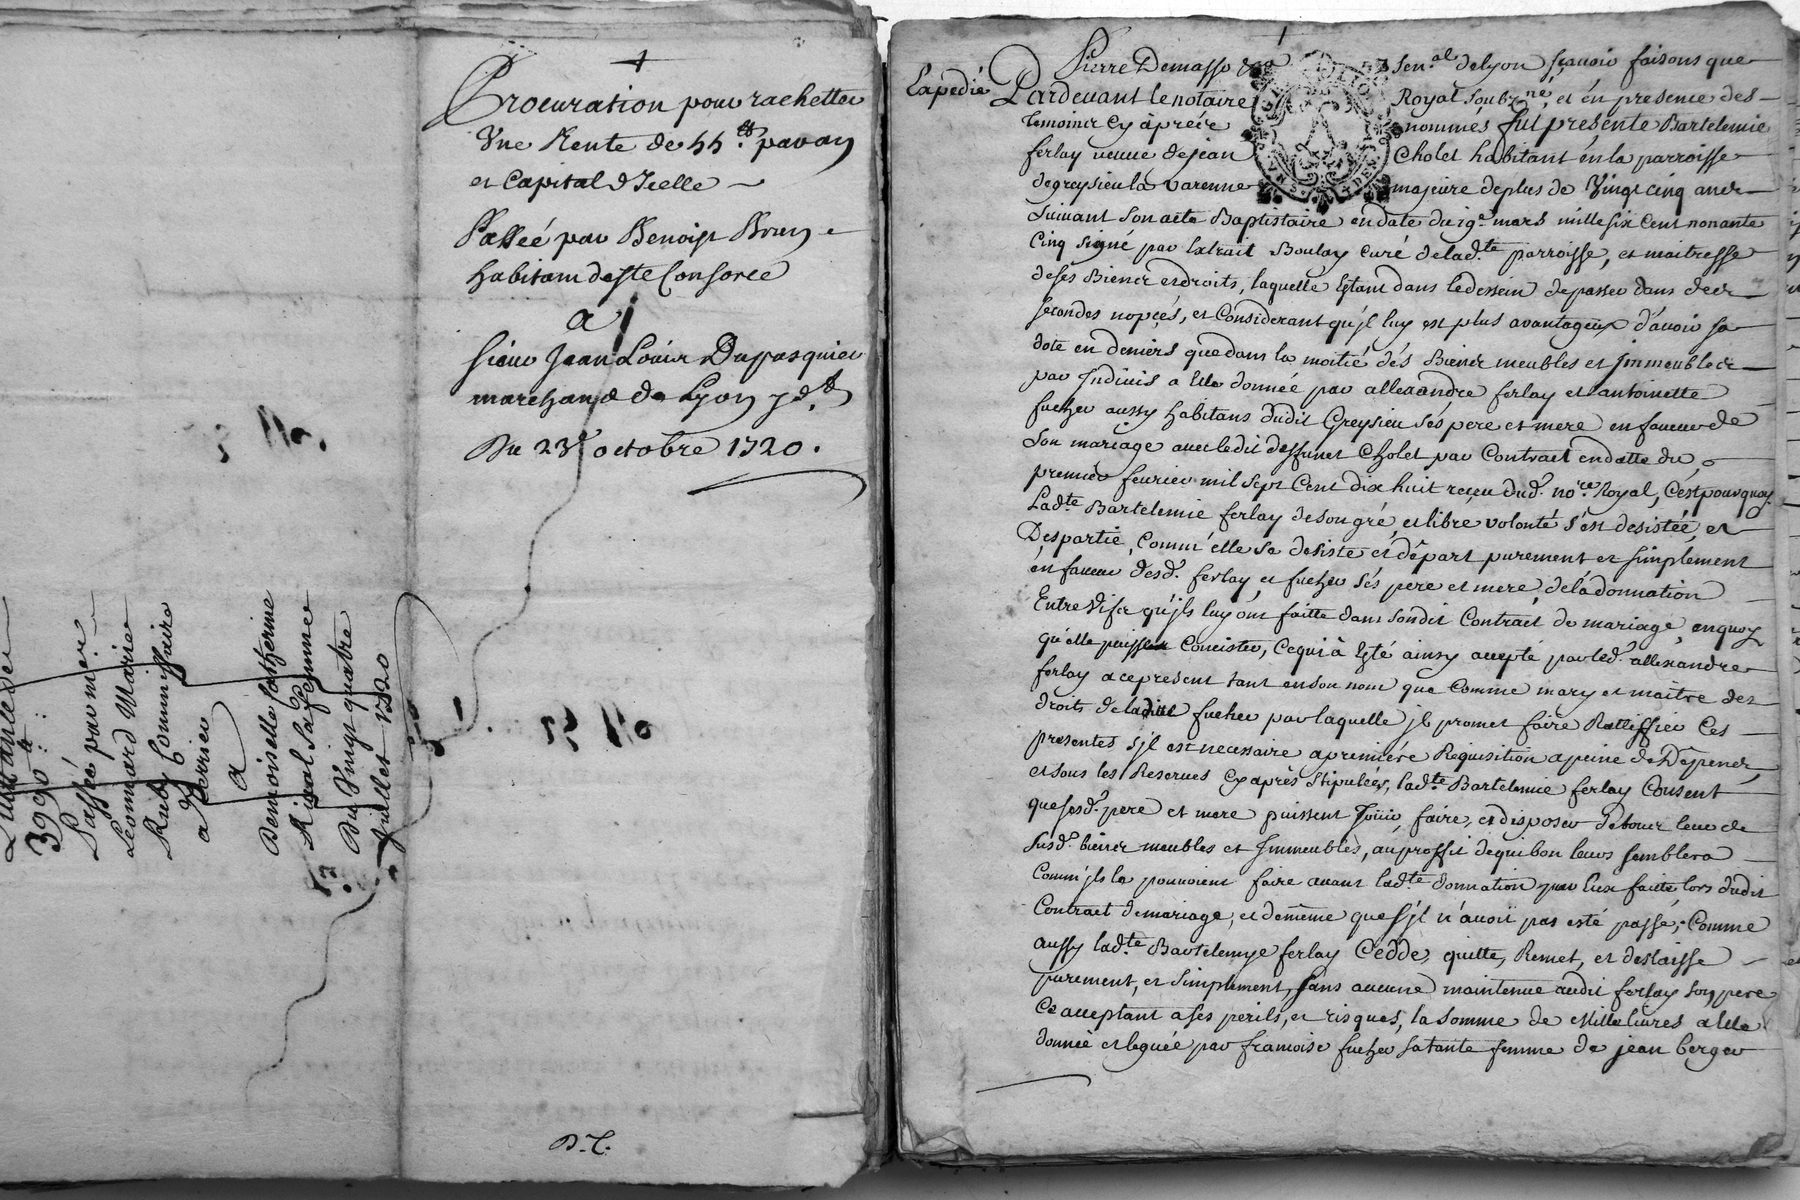 Procuration pour rachetter
Une Rente de 55.tt par an
et Capital d'Icelle
Passeé par Benoist Brun
habitant de Ste Consorce
a
sieur Jean Louis Dupasquier
marchand de Lyon
Du 23e octobre 1720.
D.C.
3990
Passée par mer
Leonnard Marie
Ruby Commissaire
a Terrier
a
Demoiselle Catherine
Rigal sa femme
Du Vingt quatre
Juillet 1720
Expedié
Pierre Demasso &ca sen.al de lyon sçavoir faisons que
Pardevant le notaire Royal soubz.né, et en presence des
temoins Cy aprés nommés fut presente Bartelemie
ferlay veuve de jean Cholet habitant en la parroisse
de greysieu la varenne majeure de plus de Vingt cinq ans
suivant son acte Baptistaire en date du 19e mars mille six Cent nonante
Cinq signé par Extrait Boulay Curé de lad.te parroisse, et maitresse
de ses Biens et droits, laquelle Estant dans le dessein de passer dans des
secondes nopçes, et Considerant qu'jl luy est plus avantageux d'avoir sa
dote en deniers que dans la moitié dés Biens meubles et Jmmeubles
par Jndivis a Elle donnée par allexandre ferlay et antoinette
fucher aussy habitans dudit Greysieu sés pere et mere en faveur de
son mariage avec ledit deffunct Cholet par Contract en datte du
premier fevrier mil sept Cent dix huit reçeu dud.t no.re Royal, C'est pourquoy
Lad.te Bartelemie ferlay de son gré, et libre volonté s'est desistée, et
Despartie, Comm'elle se desiste et départ purement et simplement
en faveur desd.t ferlay, et fucher sés pere et mere, de la donnation
Entre Vifs qu'jls luy ont faitte dans sondit Contrait de mariage, en quoy
qu'elle puisse Concister, Ce qui à Esté ainsy accepté par led.t allexandre
ferlay a ce present tant en son nom que Comme mary et maitre des
droits de ladite fucher par laquelle jl promet faire Rattiffier Ces
presentes s'jl est necessaire a premiére Requisition a peine de Dépens,
et sous les Reserves Cy aprés stipulées, lad.te Bartelemie ferlay Consent
que sesd.t pere et mere puissent Joüir, faire, et disposer de tous leur de
susd.t biens meubles et Jmmeubles, au proffit de qui bon leurs semblera
Comm'jls le pouvoient faire avant lad.te donnation par Eux faitte lors dudit
Contract de mariage, et de même que s'jl n'avoit pas esté passé; Comme
aussy lad.te Bartelemye ferlay Cedde, quitte, Remet, et deslaisse
purement, et simplement, sans aucune maintenue audit ferlay son pere
Ce acceptant a ses perils, et risques, la somme de Mille livres a Elle
donnée et leguée par francoise fucher sa tante femme de jean berger